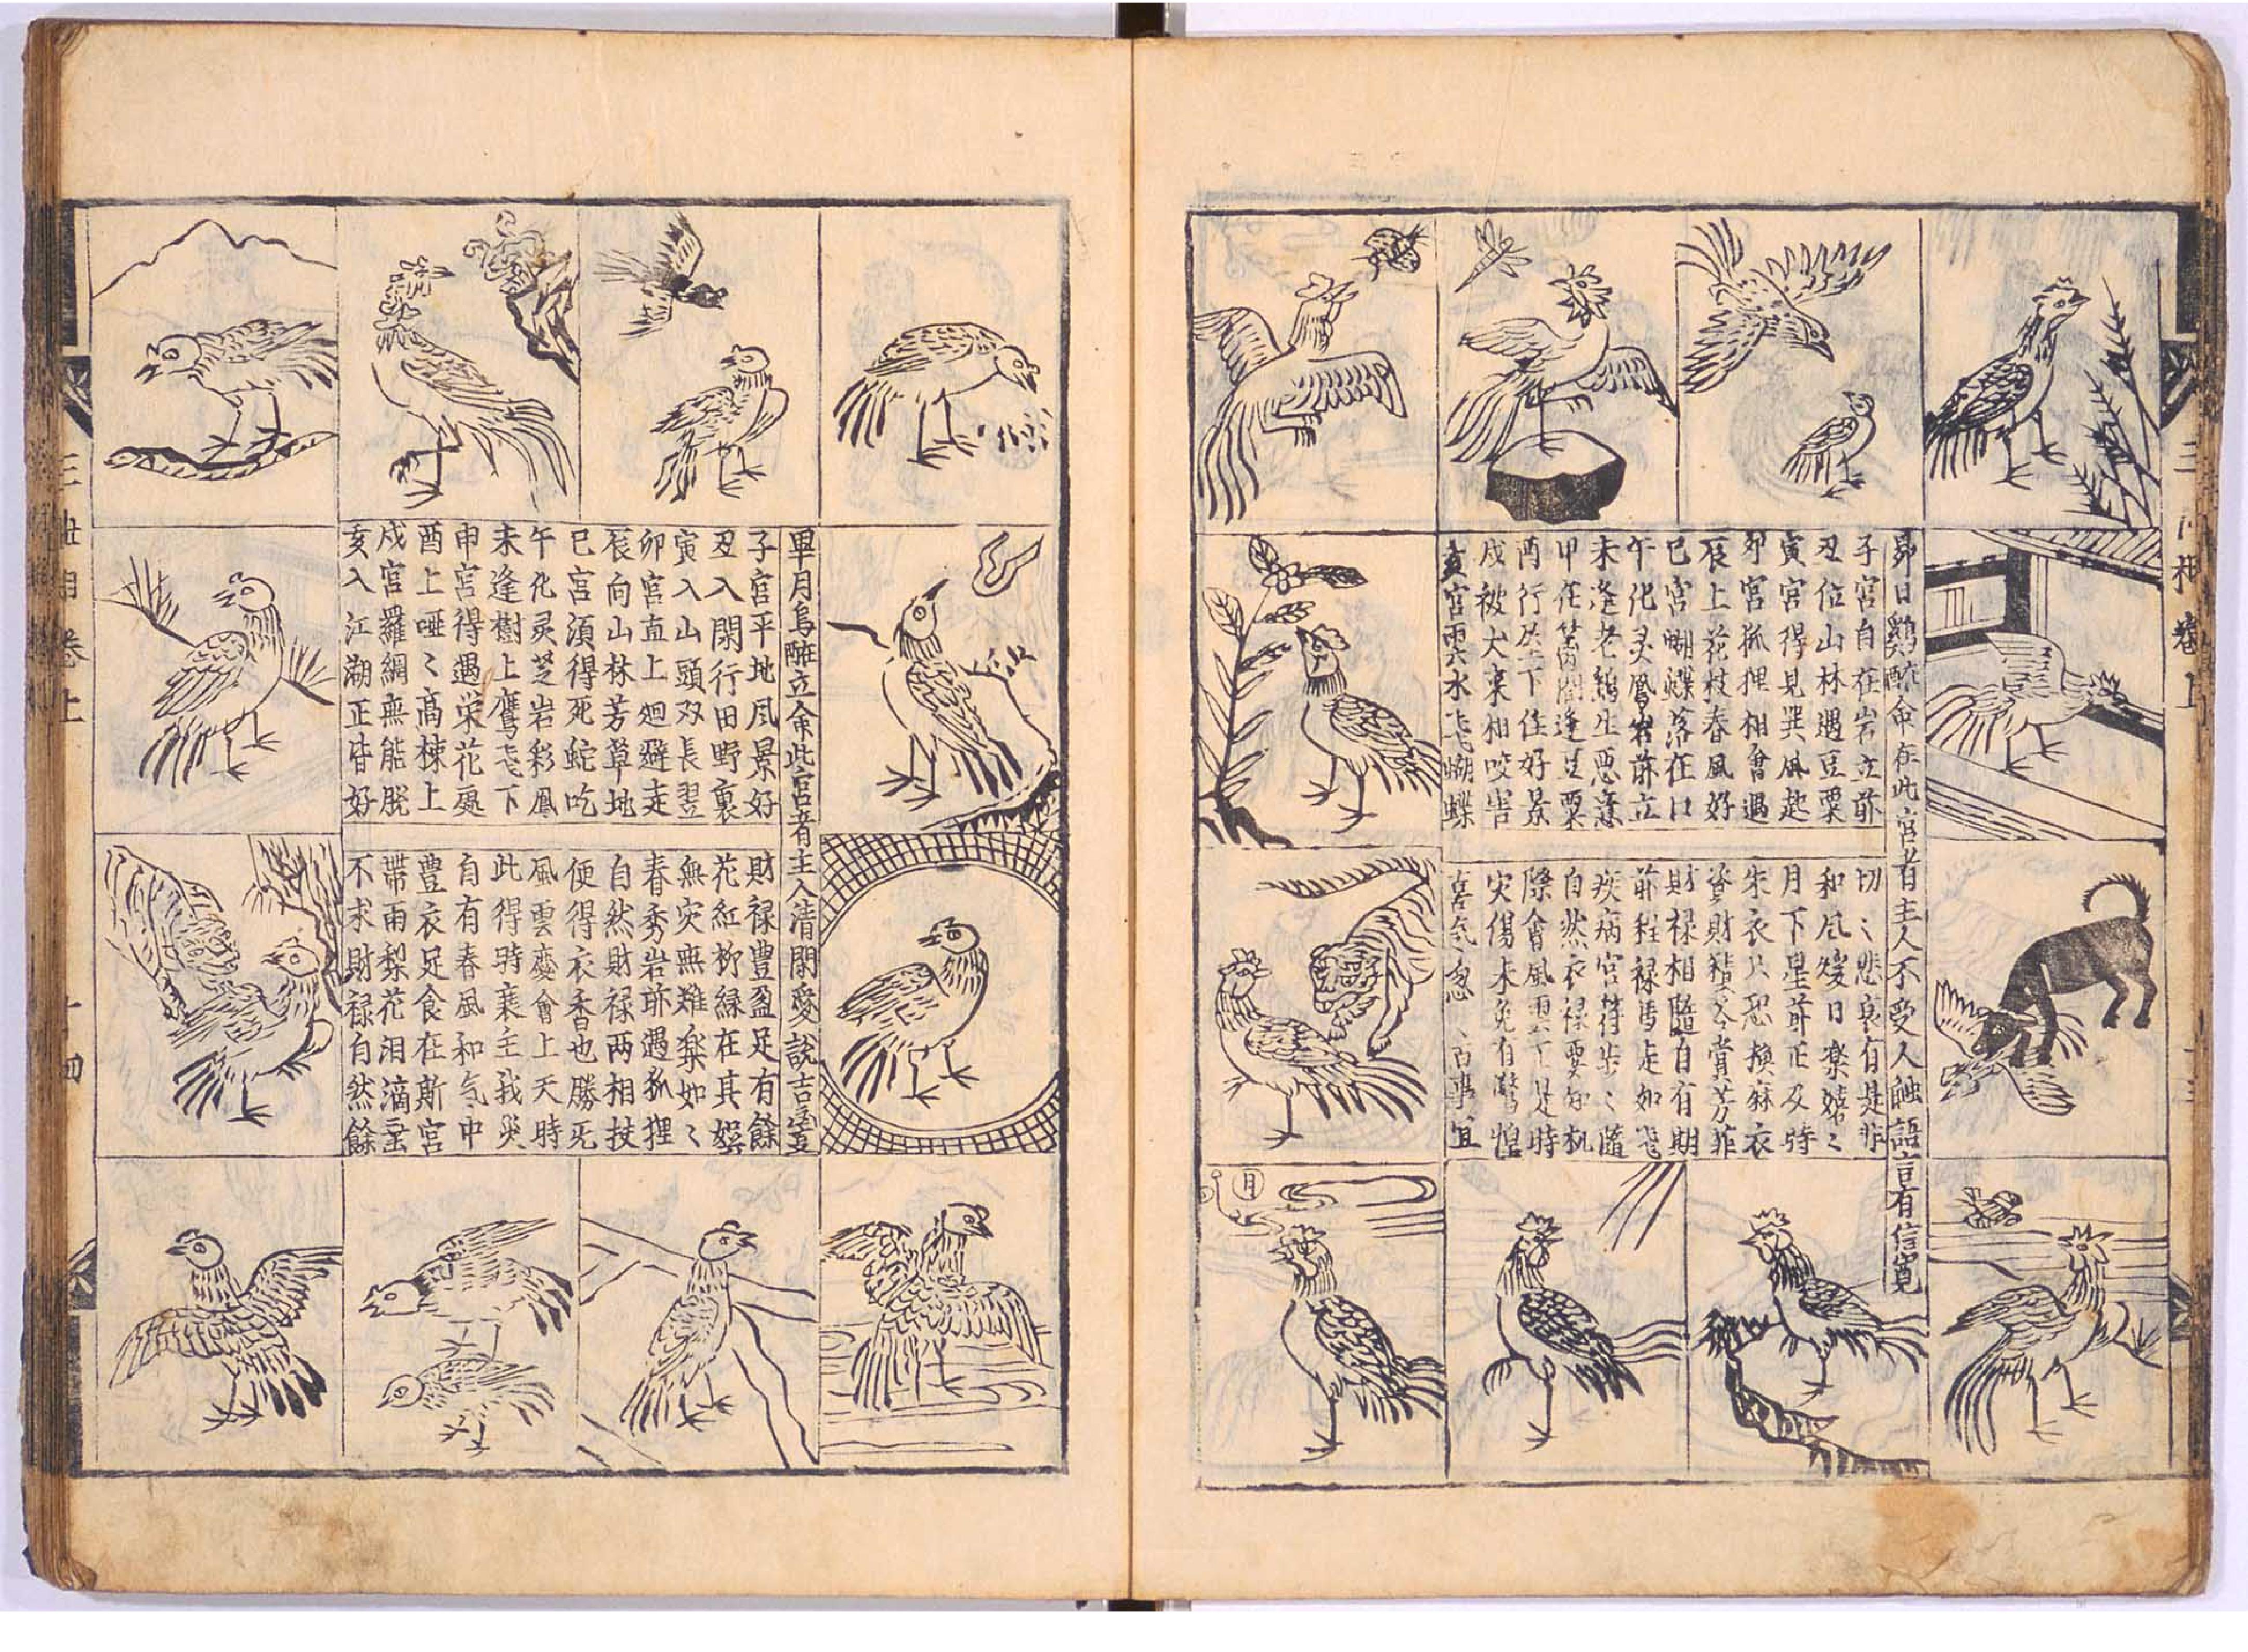 昴日鷄酔命在此宮者主人不受人触語言有信寛
子宮自在岩立前
丑位山林遇豆粟
寅宮得見巽風起
卯宮狐狸相會遇
辰上花枝春風好
巳宮蝴蝶落在口
午化灵鳳岩前立
未逢老鴉生惡意
申在逢豆粟
酉行屋下住好景
戌被犬来相咬害
亥宮雲水飛蝴蝶
切〻悲哀有是非
和風煖日楽嬉〻
月下星前正及時
朱衣只恐換麻衣
資財積谷賞芳菲
財禄相隨自有期
前程禄馬走如飛
疾病宮符步〻隨
自然衣禄要知机
際會風雲正是時
灾傷未免有驚惶
喜気忽〻百事宜
畢月烏酔立命此宮者主人清閑愛説吉
子宮平地風景好
丑入閑行田野裏
寅入山頭双長翌
卯宮直上廻避走
辰向山林芳草地
巳宮須得死蛇吃
午化灵芝岩彩鳳
未逢樹上鷹飛下
申宮得遇栄花處
酉上唖〻高棟上
戌宮羅網無能脱
亥入江湖正皆好
財禄豊盈足有餘
花紅柳緑在其娯
無灾無難楽如〻
春秀岩前遇狐狸
自然財禄両相扶
便得衣香也勝死
風雲慶會上天時
此得時衰主我哭
自有春風和気中
豊衣足食在斯宮
帯雨梨花泪滴
不求財禄自然餘
月
三世相卷上
十四